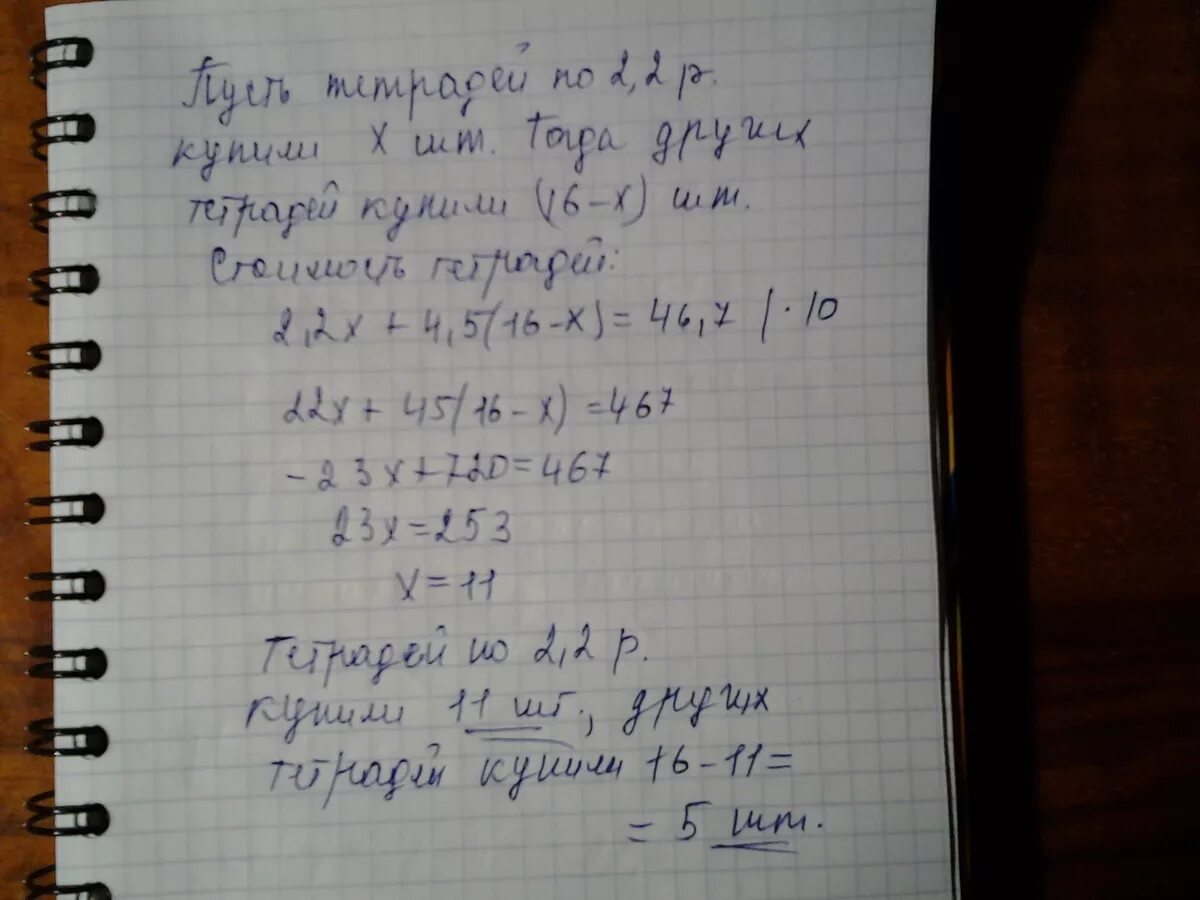 Пусть тетрадей по 2,2 р.
купили х шт. Тогда других
тетрадей купили (16-х) шт.
Стоимость тетрадей:
2,2х + 4,5(16-х) = 46,7 | · 10
22х + 45(16-х) = 467
-23х+720=467
23х=253
х=11
Тетрадей по 2,2 р.
купили 11 шт., других
тетрадей купили 16-11=
= 5 шт.